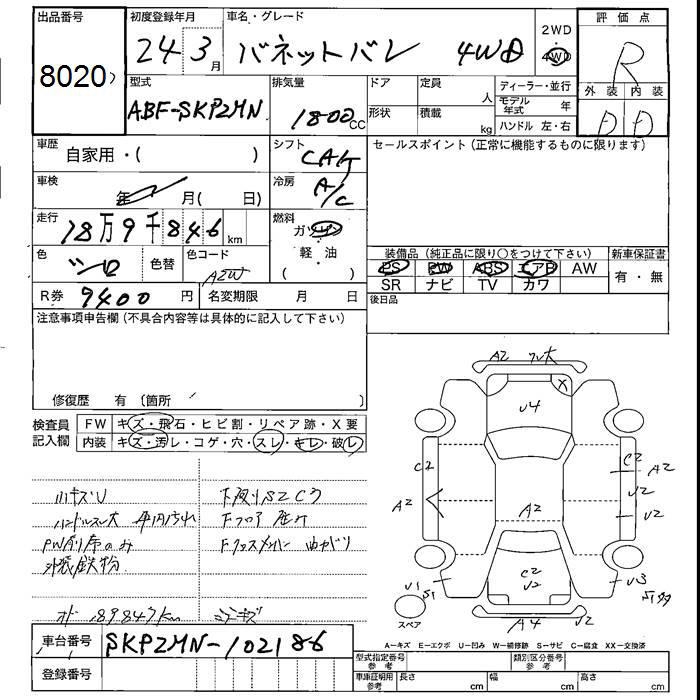 出品番号
8020
初度登録年月
24 3月
車名・グレード
バネットバン 4WD
2WD
・
4WD
評価点
R
型式
ABF-SKP2MN
排気量
1800cc
ドア
定員
人
形状
積載
kg
ディーラー・並行
モデル年式 年
ハンドル 左・右
外装 内装
D D
車歴
自家用・( )
シフト
CAT
セールスポイント (正常に機能するものに限ります)
車検
年 月( 日)
冷房
A/C
走行
18万9千846km
燃料
ガソリン
軽・油
( )
色
シロ
色替
色コード
A2W
装備品 (純正品に限り○をつけて下さい)
PS PW ABS エアB AW
SR ナビ TV カワ
新車保証書
有・無
R券 9400円
名変期限 月 日
後日品
注意事項申告欄 (不具合内容等は具体的に記入して下さい)
修復歴 有 (箇所 )
検査員記入欄
FW キズ・飛石・ヒビ割・リペア跡・X要
内装 キズ・汚レ・コゲ・穴・スレ・キレ・破レ
小キズU
下廻りS2C3
ハンドルスレ大
PW
のみ
Fフロア
外装鉄粉
89847km
A2 ワレ大
X
U4
C2
A2
A2
C2
A2
U2
U2
C2
U2
U1
S1
U3
A4
U2
スペア
A-キズ E-エクボ U-凹み W-補修跡 S-サビ C-腐食 XX-交換済
車台番号
SKP2MN-102186
登録番号
型式指定番号 参考
類別区分番号 参考
車庫証明用 参考
長さ cm
幅 cm
高さ cm